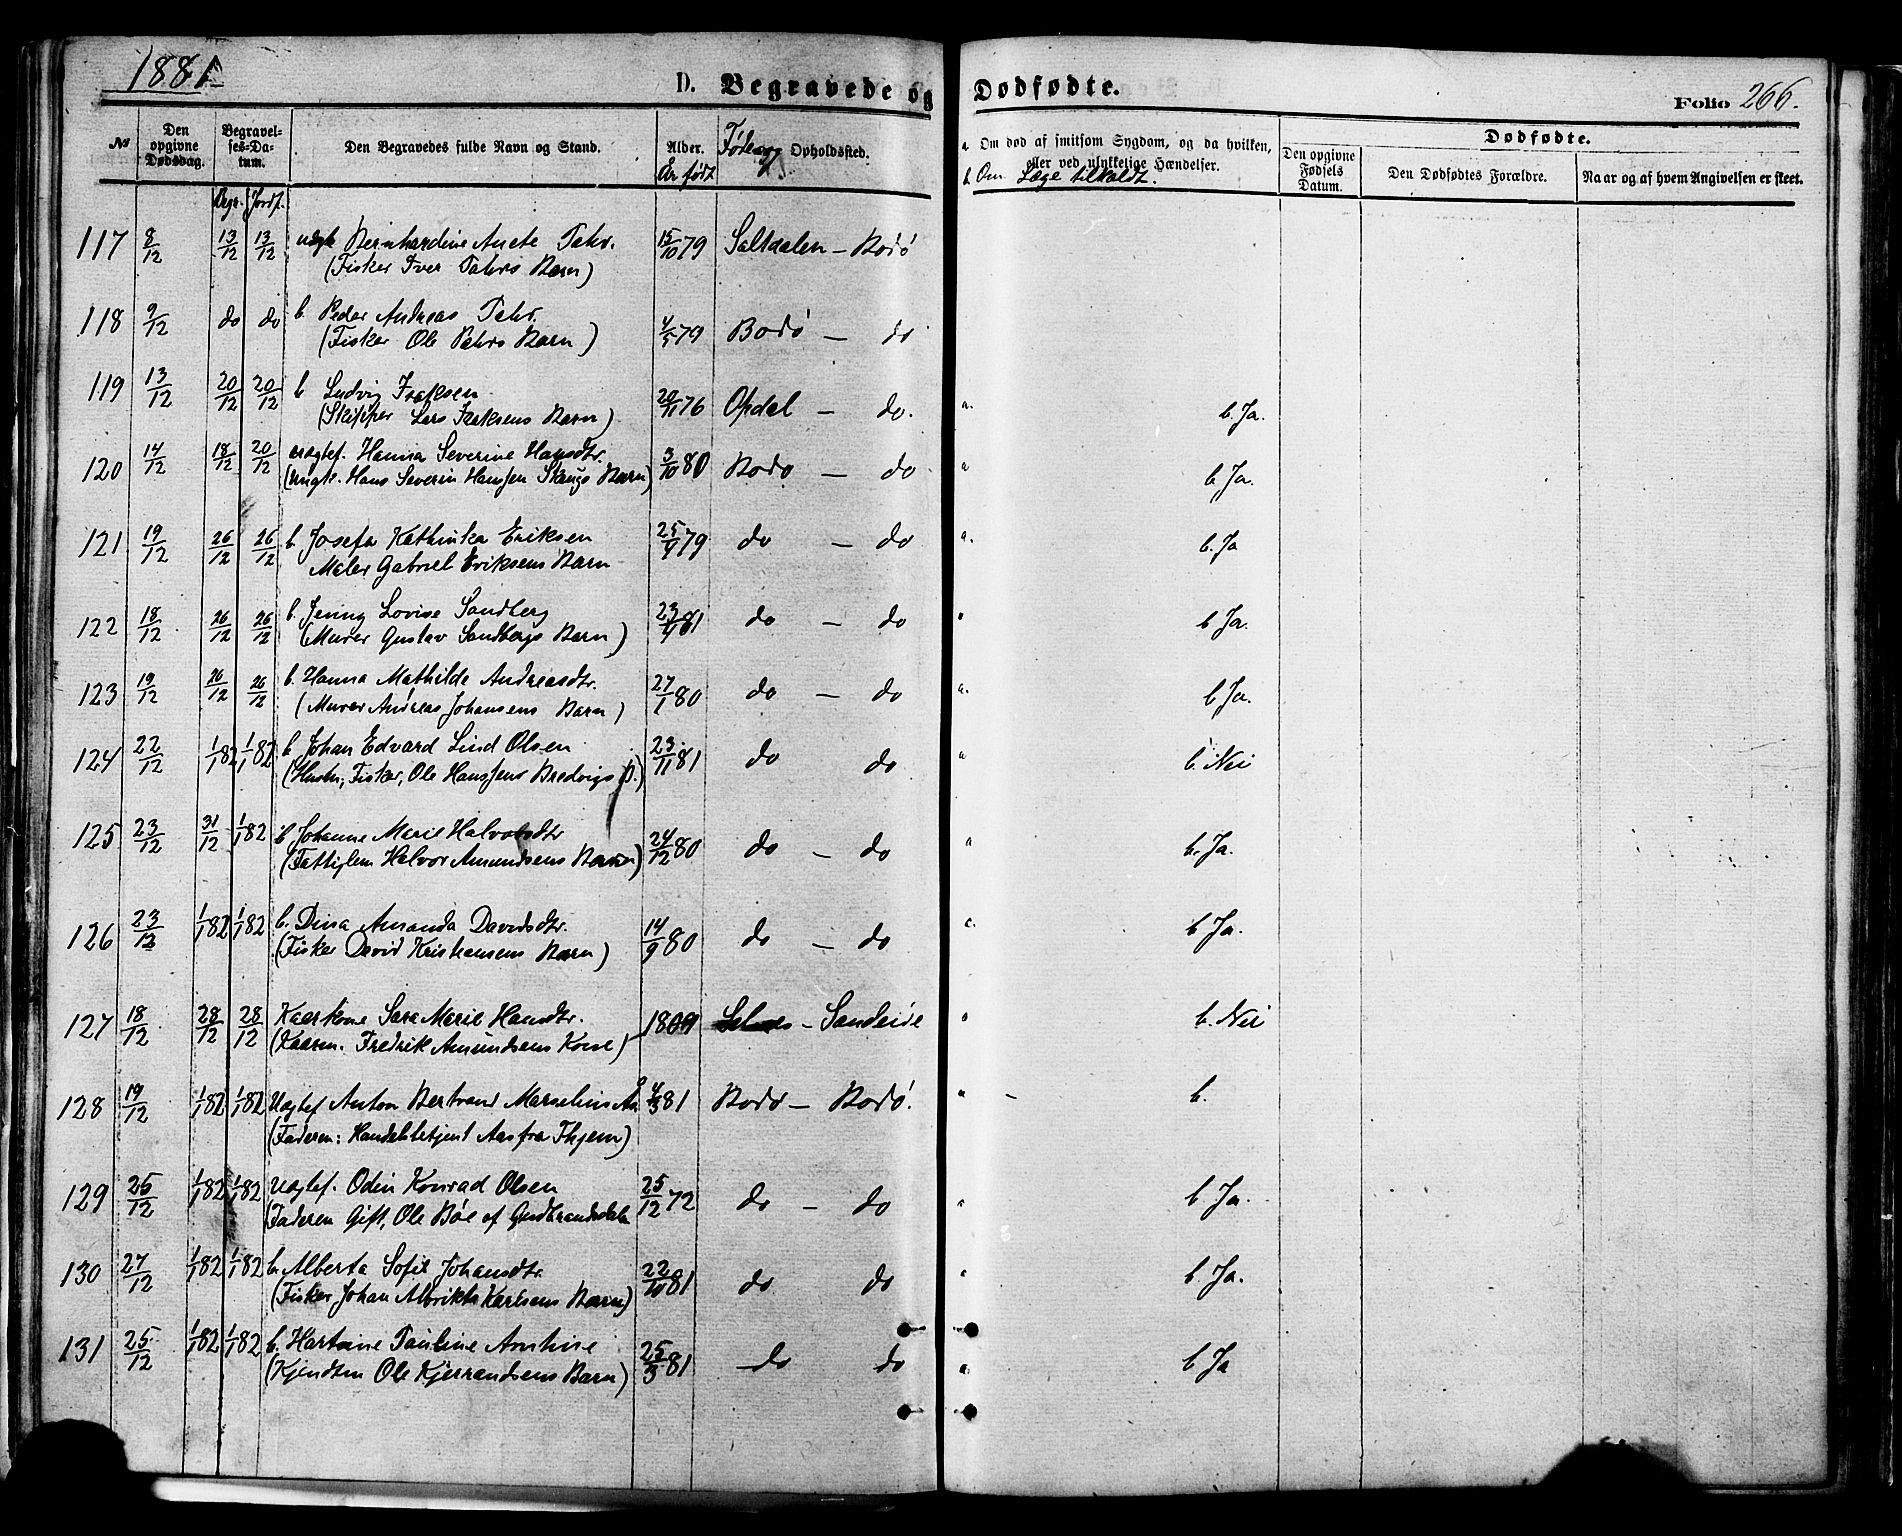 1881
D. Begravede og Dødfødte.
Folio 266.
№ Den opgivne Dødsdag. Begravelses-Datum. Den Begravedes fulde Navn og Stand. Alder. År født Føde og Opholdssted. a Om død af smitsom Sygdom, og da hvilken, eller ved ulykkelige Hændelser. b Om Læge tilkaldt. Dødfødte. Den opgivne Fødsels Datum. Den Dødfødtes Forældre. Naar og af hvem Angivelsen er skeet.
Begr. Jordf.
117 8/12 13/12 13/12 uægte Bernhardine Anete 15/10 79 Saltdalen – Bodø
(Fisker Iver Barn)
118 9/12 do do b. Peder Andreas 79 Bodø – do
(Fisker Ole Barn)
119 13/12 20/12 20/12 b Ludvig Isaksen 20/11 76 Opdal – do. a. b. Ja.
(Skipper Lars Isaksens Barn)
120 14/12 18/12 20/12 uægtef. Hanna Severine Hansdtr. 3/10 80 Bodø – do a b Ja.
(Ungk. Hans Severin Hanssen Skaugs Barn)
121 19/12 26/12 26/12 b. Josefa Kathinka Eriksen 25/9 79 do – do a. b. Ja
Maler Gabriel Eriksens Barn
122 18/12 26/12 26/12 b. Jenny Lovise Sandberg 23/9 81 do – do b Ja.
(Murer Gustav Sandbergs Barn)
123 19/12 26/12 26/12 b. Hanna Mathilde Andreasdtr. 27/1 80 do – do a. b Ja.
(Murer Andreas Johansens Barn)
124 22/12 1/1 82 1/1 82 b. Johan Edvard Lind Olsen 23/11 81 do do a b. Nei
(Fisker, Ole Hanssens Bredvigs B.)
125 23/12 31/12 1/1 82 b Johanne Marie Halvorsdtr 24/12 80 do – do a b. Ja.
(Fattiglem Halvor Amundsens Barn)
126 23/12 1/1 82 1/1 82 b. Dina Amanda Davidsdtr. 14/9 80 do – do b Ja.
(Fisker David Kristiansens Barn)
127 18/12 28/12 28/12 Kaarkone Sara Marie Hansdtr. 1809 – Sandeide b. Nei
(Kaarm. Fredrik Amundsens Kone)
128 19/12 1/1 82 1/1 82 Uægtef Anton Bertrand Marselius 4/3 81 Bodø – Bodø. a – b.
(Faderen: Handelsbetjent Aas fra Thjem)
129 26/12 1/1 82 1/1 82 Uægtef. Odin Konrad Olsen 25/12 72 do – do b Ja.
(Faderen Gift, Ole Bøe af Gudbrandsdalen
130 27/12 1/1 82 1/1 82 b. Alberta Sofie Johansdtr. 22/10 81 do do a b. Ja.
(Fisker Johan Albrikt Karlsens Barn)
131 25/12 1/1 82 1/1 82 b. Hartvine Pauline Antine 25/3 81 do do a. b Ja
(Kjendtm Ole Kjerrandsens Barn)